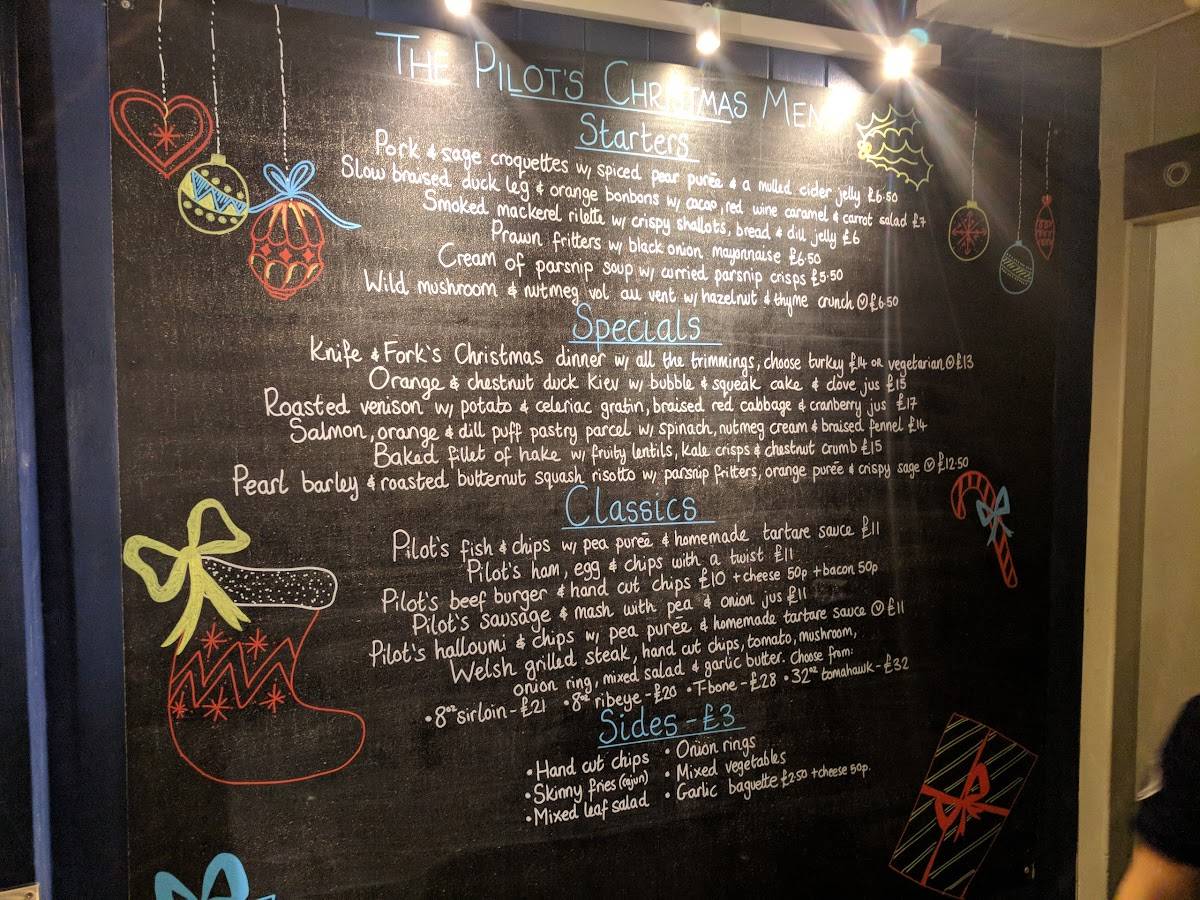 THE PILOT'S CHRISTMAS MEN
Starters
Pork & sage croquettes w/ spiced pear purēe & a mulled cider jelly £6.50
Slow braised duck leg & orange bonbons w/ cacao, red wine caramel & carrot salad £7
Smoked mackerel rilette w/ crispy shallots, bread & dill jelly £6
Prawn fritters w/ black onion mayonnaise £6.50
Cream of parsnip soup w/ curried parsnip crisps £5.50
Wild mushroom & nutmeg vol au vent w/ hazelnut & thyme crunch Ⓥ £6.50
Specials
Knife & Fork's Christmas dinner w/ all the trimmings, choose turkey £14 OR vegetarian Ⓥ £13
Orange & chestnut duck Kiev w/ bubble & squeak cake & clove jus £15
Roasted venison w/ potato & celeriac gratin, braised red cabbage & cranberry jus £17
Salmon, orange & dill puff pastry parcel w/ spinach, nutmeg cream & braised fennel £14
Baked fillet of hake w/ fruity lentils, kale crisps & chestnut crumb £15
Pearl barley & roasted butternut squash risotto w/ parsnip fritters, orange purēe & crispy sage Ⓥ £12.50
Classics
Pilot's fish & chips w/ pea purēe & homemade tartare sauce £11
Pilot's ham, egg & chips with a twist £11
Pilot's beef burger & hand cut chips £10 + cheese 50p + bacon 50p
Pilot's sausage & mash with pea & onion jus £11
Pilot's halloumi & chips w/ pea purēe & homemade tartare sauce Ⓥ £11
Welsh grilled steak, hand cut chips, tomato, mushroom,
onion ring, mixed salad & garlic butter. Choose from:
• 8oz sirloin - £21 • 8oz ribeye - £20 • T-bone - £28 • 32oz tomahawk - £32
Sides - £3
• Hand cut chips • Onion rings
• Skinny fries (cajun) • Mixed vegetables
• Mixed leaf salad • Garlic baguette £2.50 + cheese 50p.